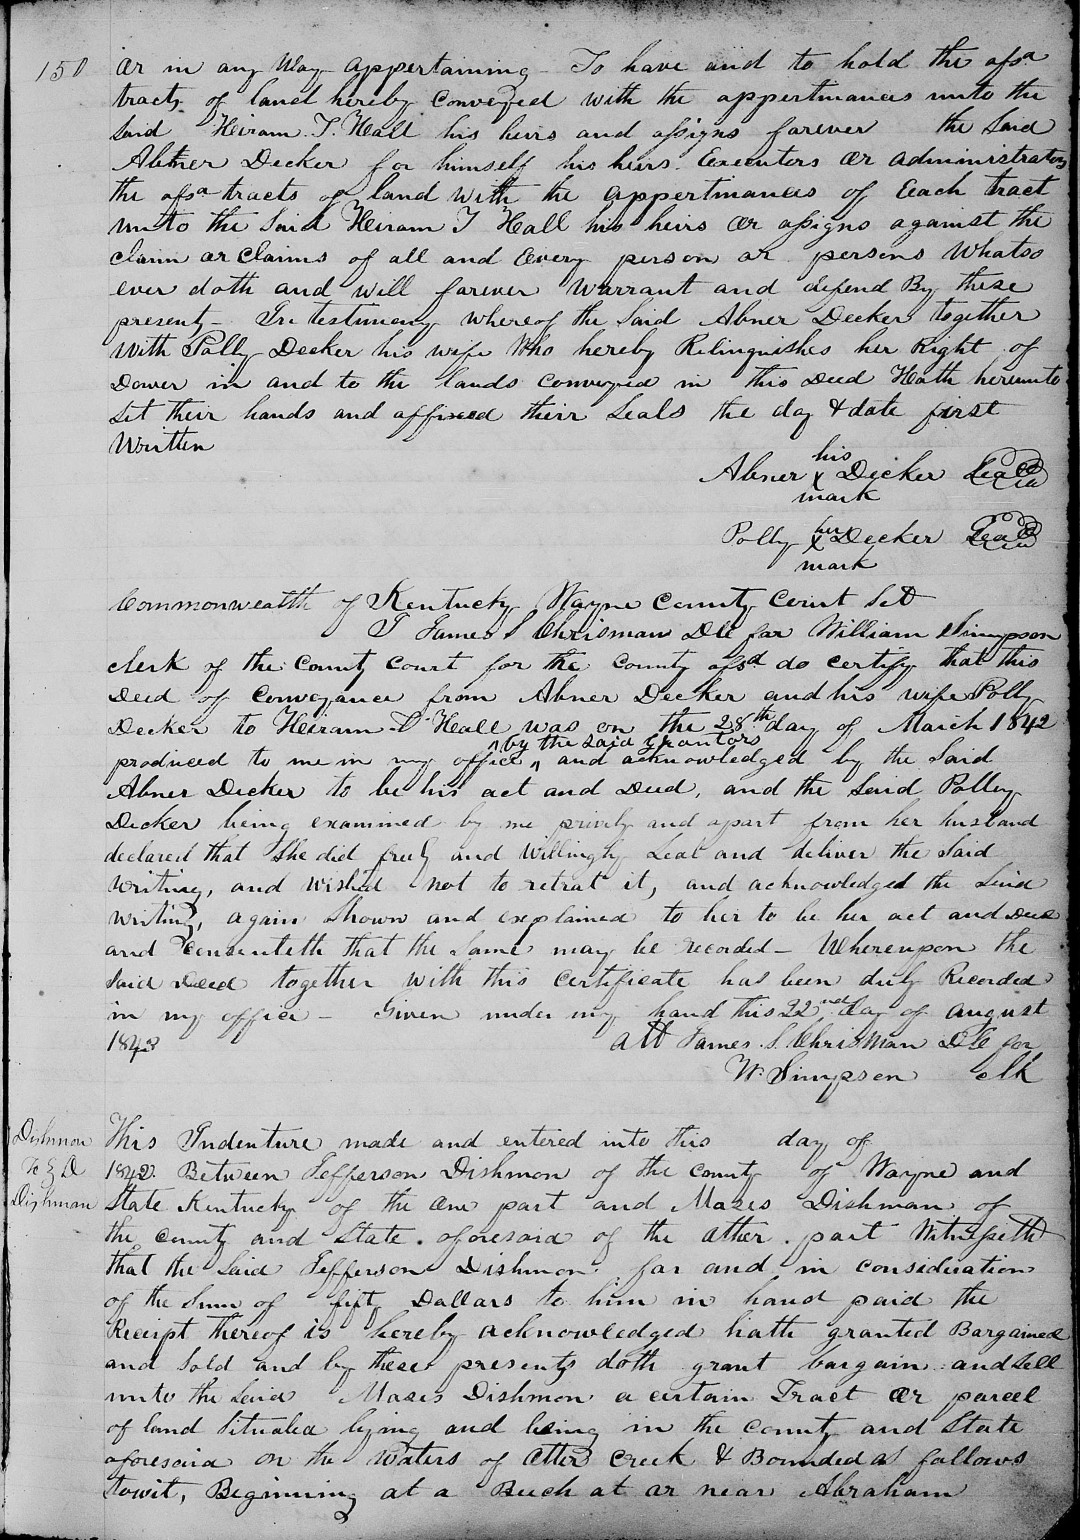 150
or in any Way appertaining - To have and to hold the afsd
tracts of land hereby Conveyed with the appertinances unto the
Said Heiram T. Hall his heirs and assigns forever the Said
Abner Decker for himself his heirs Executors or administrators
the afsd tracts of land with the appertinances of Each tract
unto the Said Heiram T Hall his heirs or assigns against the
Claim or Claims of all and Every person or persons Whatso
ever doth and will forever Warrant and defend By these
present - In testimony whereof the Said Abner Decker together
With Polly Decker his wife Who hereby Relinquishes her Right of
Dower in and to the lands conveyed in this Deed Hath hereunto
Set their hands and affixed their Seals the day & date first
Written
Abner his X mark Decker Seal
Polly her X mark Decker Seal
Commonwealth of Kentucky Wayne County Court Sct
I James S Chrisman DC for William Simpson
clerk of the County Court for the County afsd do certify that this
Deed of Conveyance from Abner Decker and his wife Polly
Decker to Heiram T Hall was on the 28th day of March 1842
produced to me in my office ^ by the said grantors ^ and acknowledged by the Said
Abner Decker to be his act and Deed, and the Said Polly
Decker being examined by me privily and apart from her husband
declared that She did freely and Willingly Seal and deliver the Said
Writing, and wished not to retrat it, and acknowledged the Said
Writing, again Shown and explained to her to be her act and Deed
and Consenteth that the Same may be recorded - Whereupon the
Said Deed together with this Certificate has been duly Recorded
in my office - Given under my hand this 22nd day of august
1842 Att James S. Chrisman DC for
W. Simpson clk
Dishmon
To } D
Dishman
This Indenture made and entered into this day of
1842 Between Jefferson Dishmon of the County of Wayne and
State Kentucky of the one part and Mases Dishman of
the County and State aforesaid of the other part Witnesseth
that the Said Jefferson Dishmon for and in consideration
of the Sum of fifty Dollars to him in hand paid the
Receipt thereof is hereby acknowledged hath granted Bargained
and Sold and by these presents doth grant bargain and Sell
unto the Said Mases Dishmon a certain Tract or parcel
of land Situated lying and being in the County and State
aforesaid on the Waters of Otter Creek & Bounded as follows
towit, Beginning at a Beech at or near Abraham